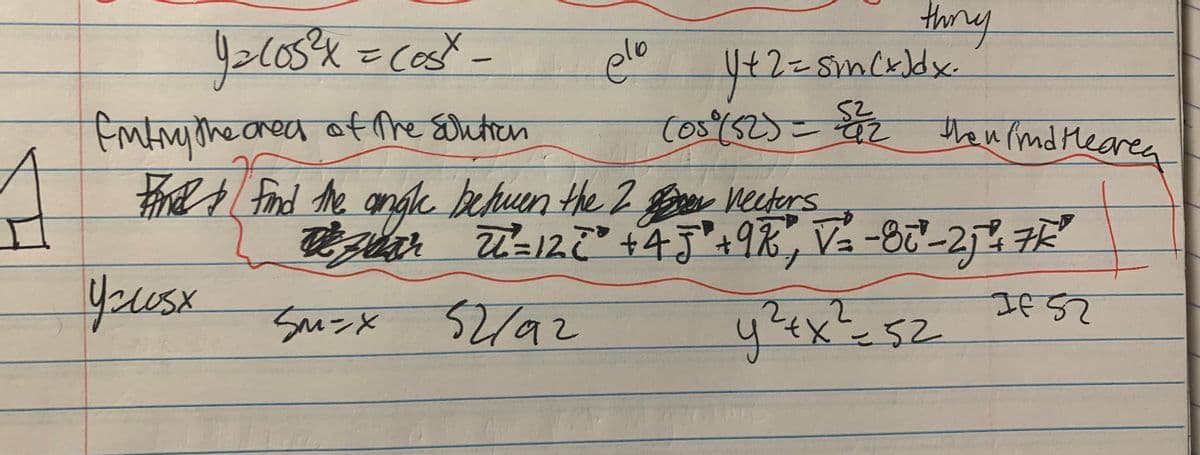 thing
y=cos²x = cosˣ -
e¹⁰
y+2=sin(x)dx.
the area of the solution
cos°(52) = 52/92 then find the area
Find the angle between the 2 vecters
u⃗=12i⃗+4j⃗+9k⃗, v⃗=-8i⃗-2j⃗+7k⃗
y=cosx
52/92
y²+x²=52
If 52